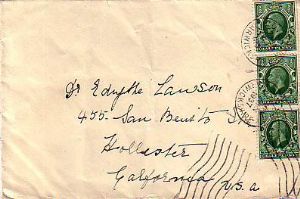 Dr Edythe Lawson
455 San Benito
Hollister
California
U.S.A